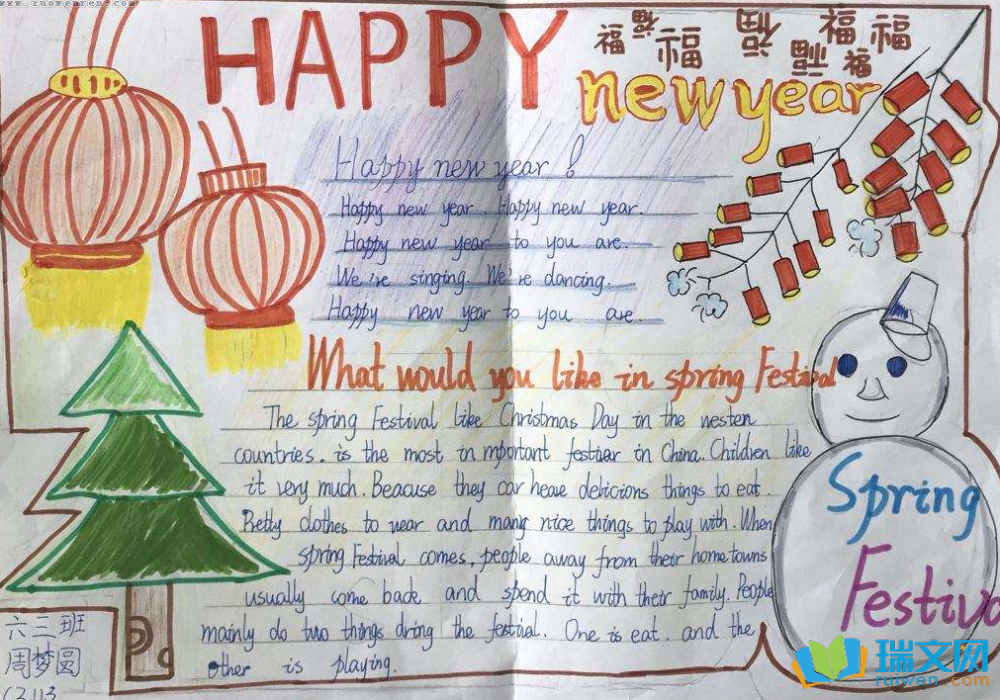 www.zuowenren.com
HAPPY
福 福 福 福 福 福 福 福
new year
Happy new year!
Happy new year. Happy new year.
Happy new year to you are.
We're singing. We're dancing.
Happy new year to you are.
What would you like in spring Festival
The spring Festival like Christmas Day in the nesten
countries. is the most in mportant festiver in China. Children like
it very much. Beacuse they car heave delicions things to eat.
Pretty clothes to near and many nice things to play with. When
spring Festival comes, people away from their home towns
usually come back and spend it with their family. People
mainly do two things dring the festival. One is eat. and the
other is playing.
Spring
Festiva
六三班
周梦圆
瑞文网
ruiwen.com